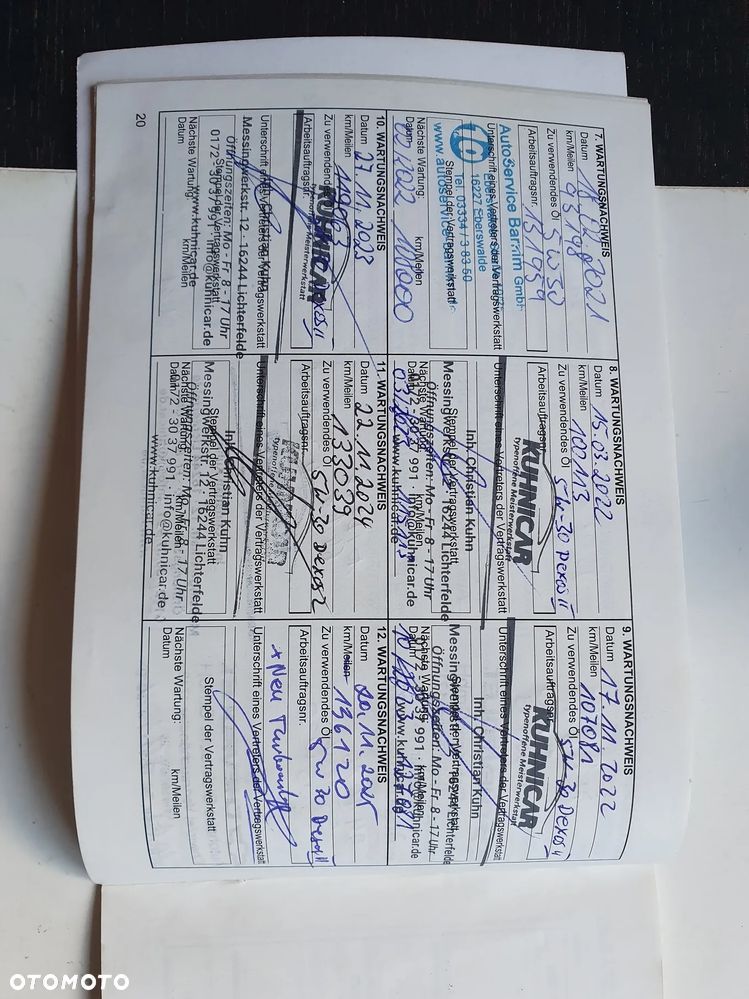 7. WARTUNGSNACHWEIS
Datum 18.02.2021
km/Meilen 95198
Zu verwendendes Öl 5W30
Arbeitsauftragsnr. 131959
AutoService Barnim GmbH
Unterschrift eines Vertreters der Vertragswerkstatt
16227 Eberswalde
Tel. 03334 - 3 83 50
Stempel der Vertragswerkstatt
Nächste Wartung:
Datum 02/2022 km/Meilen
8. WARTUNGSNACHWEIS
Datum 15.03.2022
km/Meilen 100113
Zu verwendendes Öl 5W-30 Dexos II
Arbeitsauftragsnr.
KUHNICAR
typenoffene Meisterwerkstatt
Unterschrift eines Vertreters der Vertragswerkstatt
Inh. Christian Kuhn
Stempel der Vertragswerkstatt
Messingwerkstr. 12 - 16244 Lichterfelde
Öffnungszeiten: Mo - Fr 8 - 17 Uhr
Nächste Wartung:
Datum km/Meilen
9. WARTUNGSNACHWEIS
Datum 17.11.2022
km/Meilen 107081
Zu verwendendes Öl 5W-30 Dexos II
Arbeitsauftragsnr.
KUHNICAR
typenoffene Meisterwerkstatt
Unterschrift eines Vertreters der Vertragswerkstatt
Inh. Christian Kuhn
Stempel der Vertragswerkstatt
Öffnungszeiten: Mo - Fr 8 - 17 Uhr
Nächste Wartung:
km/Meilen
10. WARTUNGSNACHWEIS
Datum 27.11.2023
km/Meilen
Zu verwendendes Öl
Arbeitsauftragsnr.
KUHNICAR
Unterschrift eines Vertreters der Vertragswerkstatt
Christian Kuhn
Messingwerkstr. 12 - 16244 Lichterfelde
Stempel der Vertragswerkstatt
Öffnungszeiten: Mo - Fr 8 - 17 Uhr
0172 - 30 37 991 · info@kuhnicar.de
Nächste Wartung:
www.kuhnicar.de
Datum km/Meilen
11. WARTUNGSNACHWEIS
Datum 22.11.2024
km/Meilen 133039
Zu verwendendes Öl 5W-30 Dexos 2
Arbeitsauftragsnr.
Unterschrift eines Vertreters der Vertragswerkstatt
Inh. Christian Kuhn
Stempel der Vertragswerkstatt
Messingwerkstr. 12 - 16244 Lichterfelde
Öffnungszeiten: Mo - Fr 8 - 17 Uhr
Nächste Wartung: km/Meilen
Datum 0172 - 30 37 991 · info@kuhnicar.de
www.kuhnicar.de
12. WARTUNGSNACHWEIS
Datum 20.11.2025
km/Meilen 136120
Zu verwendendes Öl 5W30 Dexos II
Arbeitsauftragsnr.
+ Neu
Unterschrift eines Vertreters der Vertragswerkstatt
Stempel der Vertragswerkstatt
Nächste Wartung:
Datum km/Meilen
20
OTOMOTO